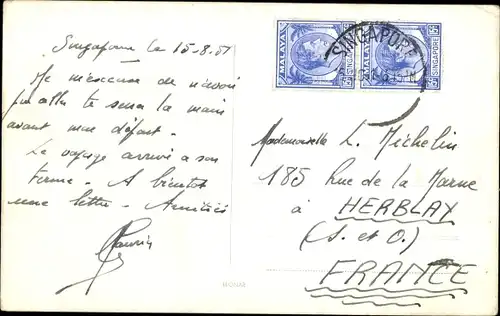 Singapour le 15-8-51
Je m'excuse de n'avoir
pu aller te serrer la main
avant mon départ.
Le voyage arrive à son
terme - A bientôt
une lettre - Amitiés
MALAYA
SINGAPORE
MALAYA
SINGAPORE
SINGAPORE
Mademoiselle L. Michelin
185 Rue de la Marne
à HERBLAY
(S. et O.)
FRANCE